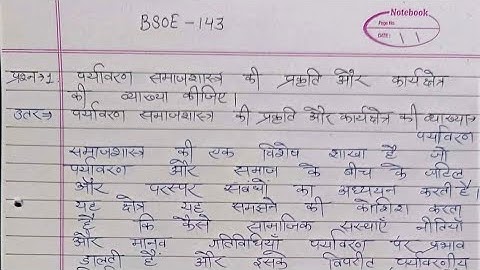 BSOE-143
Notebook
Page No.
DATE: 11
प्रश्न→1. पर्यावरण समाजशास्त्र की प्रकृति और कार्यक्षेत्र
की व्याख्या कीजिए।
उतर⇒ पर्यावरण समाजशास्त्र की प्रकृति और कार्यक्षेत्र की व्याख्या→
पर्यावरण
समाजशास्त्र की एक विशेष शाखा है जो
पर्यावरण और समाज के बीच के जटिल
और परस्पर संबंधों का अध्ययन करती है।
यह क्षेत्र यह समझने की कोशिश करता
है कि कैसे सामाजिक संस्थाएँ नीतियाँ
और मानव गतिविधियाँ पर्यावरण पर प्रभाव
डालती हैं और इसके विपरीत पर्यावरणीय